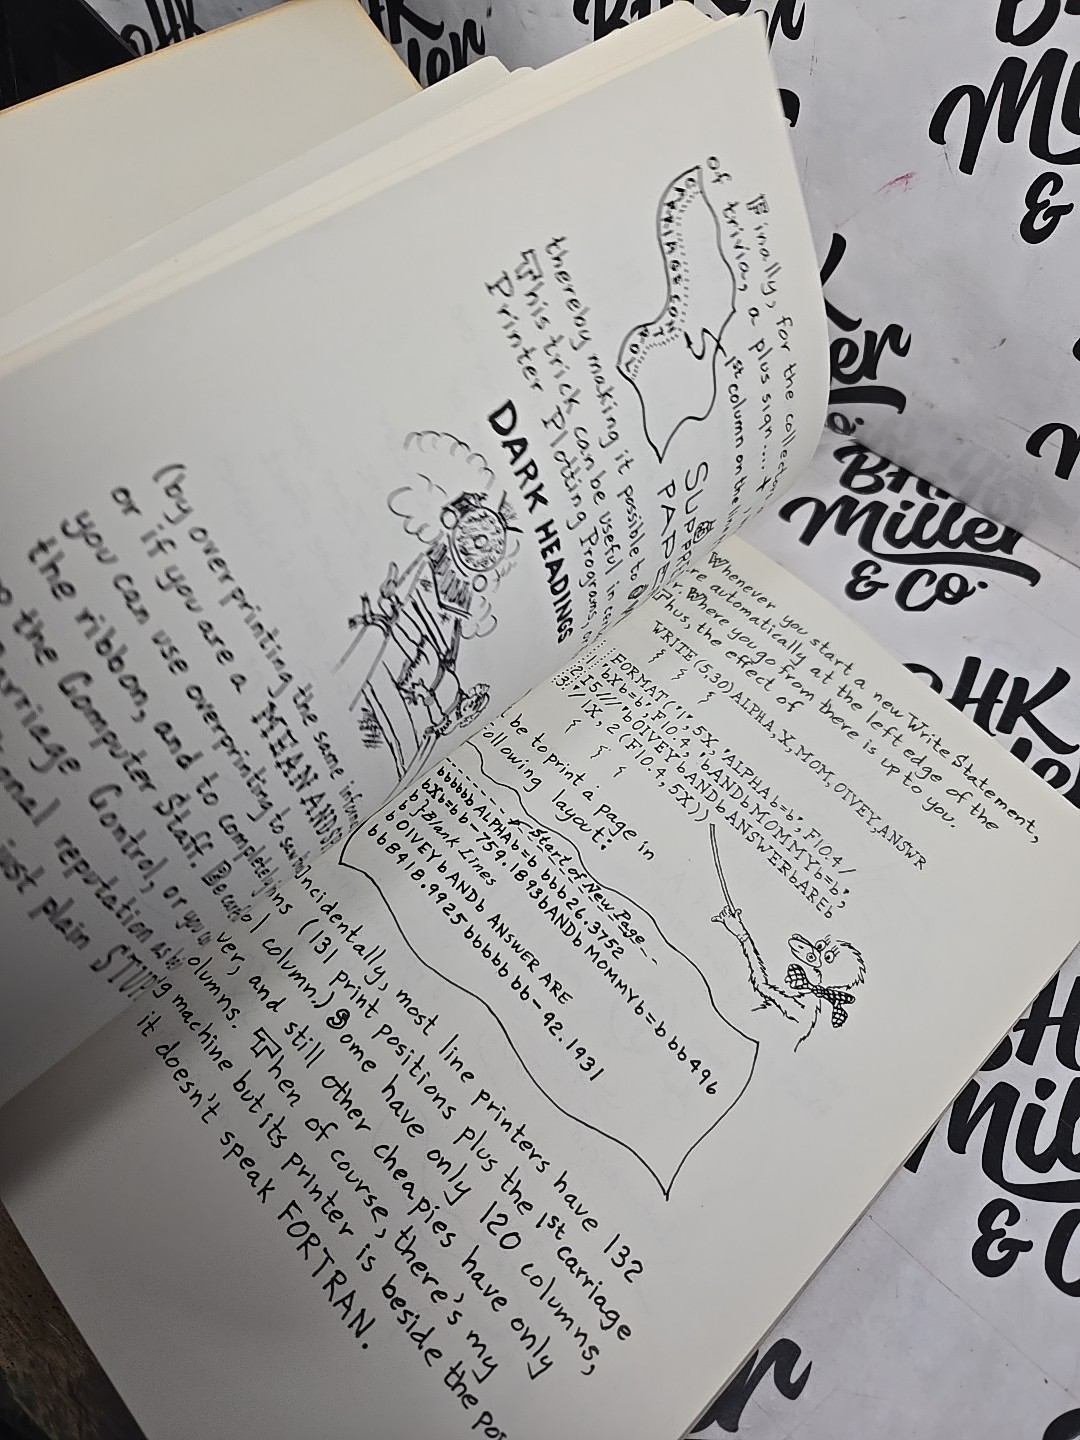 Finally, for the collector
of trivia, a plus sign....+
1st column on the
SUPPR
PAPE
thereby making it possible to
This trick can be useful in
Printer Plotting Programs,
DARK HEADINGS
(by overprinting the same
or if you are a MEAN AND
you can use overprinting to
the ribbon, and to completely
the Computer Staff. Be
Carriage Control, or you
reputation as
just plain STUP
Whenever you start a new Write Statement,
re automatically at the left edge of the
r. Where you go from there is up to you.
Thus, the effect of
WRITE(5,30)ALPHA,X,MOM,OIVEY,ANSWR
FORMAT('1',5X,'ALPHAb=b',F10.4/
1 'bXb=b',F10.4,'bANDbMOMMYb=b',
2 I5///'bOIVEYbANDbANSWERbAREb
3 '/1X,2(F10.4,5X))
be to print a page in
following layout:
--Start of New Page--
bbbbbbALPHAb=bbbb26.3752
bXb=bb-759.1893bANDbMOMMYb=bbb496
b
b }Blank Lines
bOIVEYbANDb ANSWER ARE
bb8418.9925bbbbbbb-92.1931
Incidentally, most line printers have 132
ns (131 print positions plus the 1st carriage
l column.) Some have only 120 columns,
ver, and still other cheapies have only
olumns. Then of course, there's my
g machine but its printer is beside the
it doesn't speak FORTRAN.
BHK
Miller
& Co.